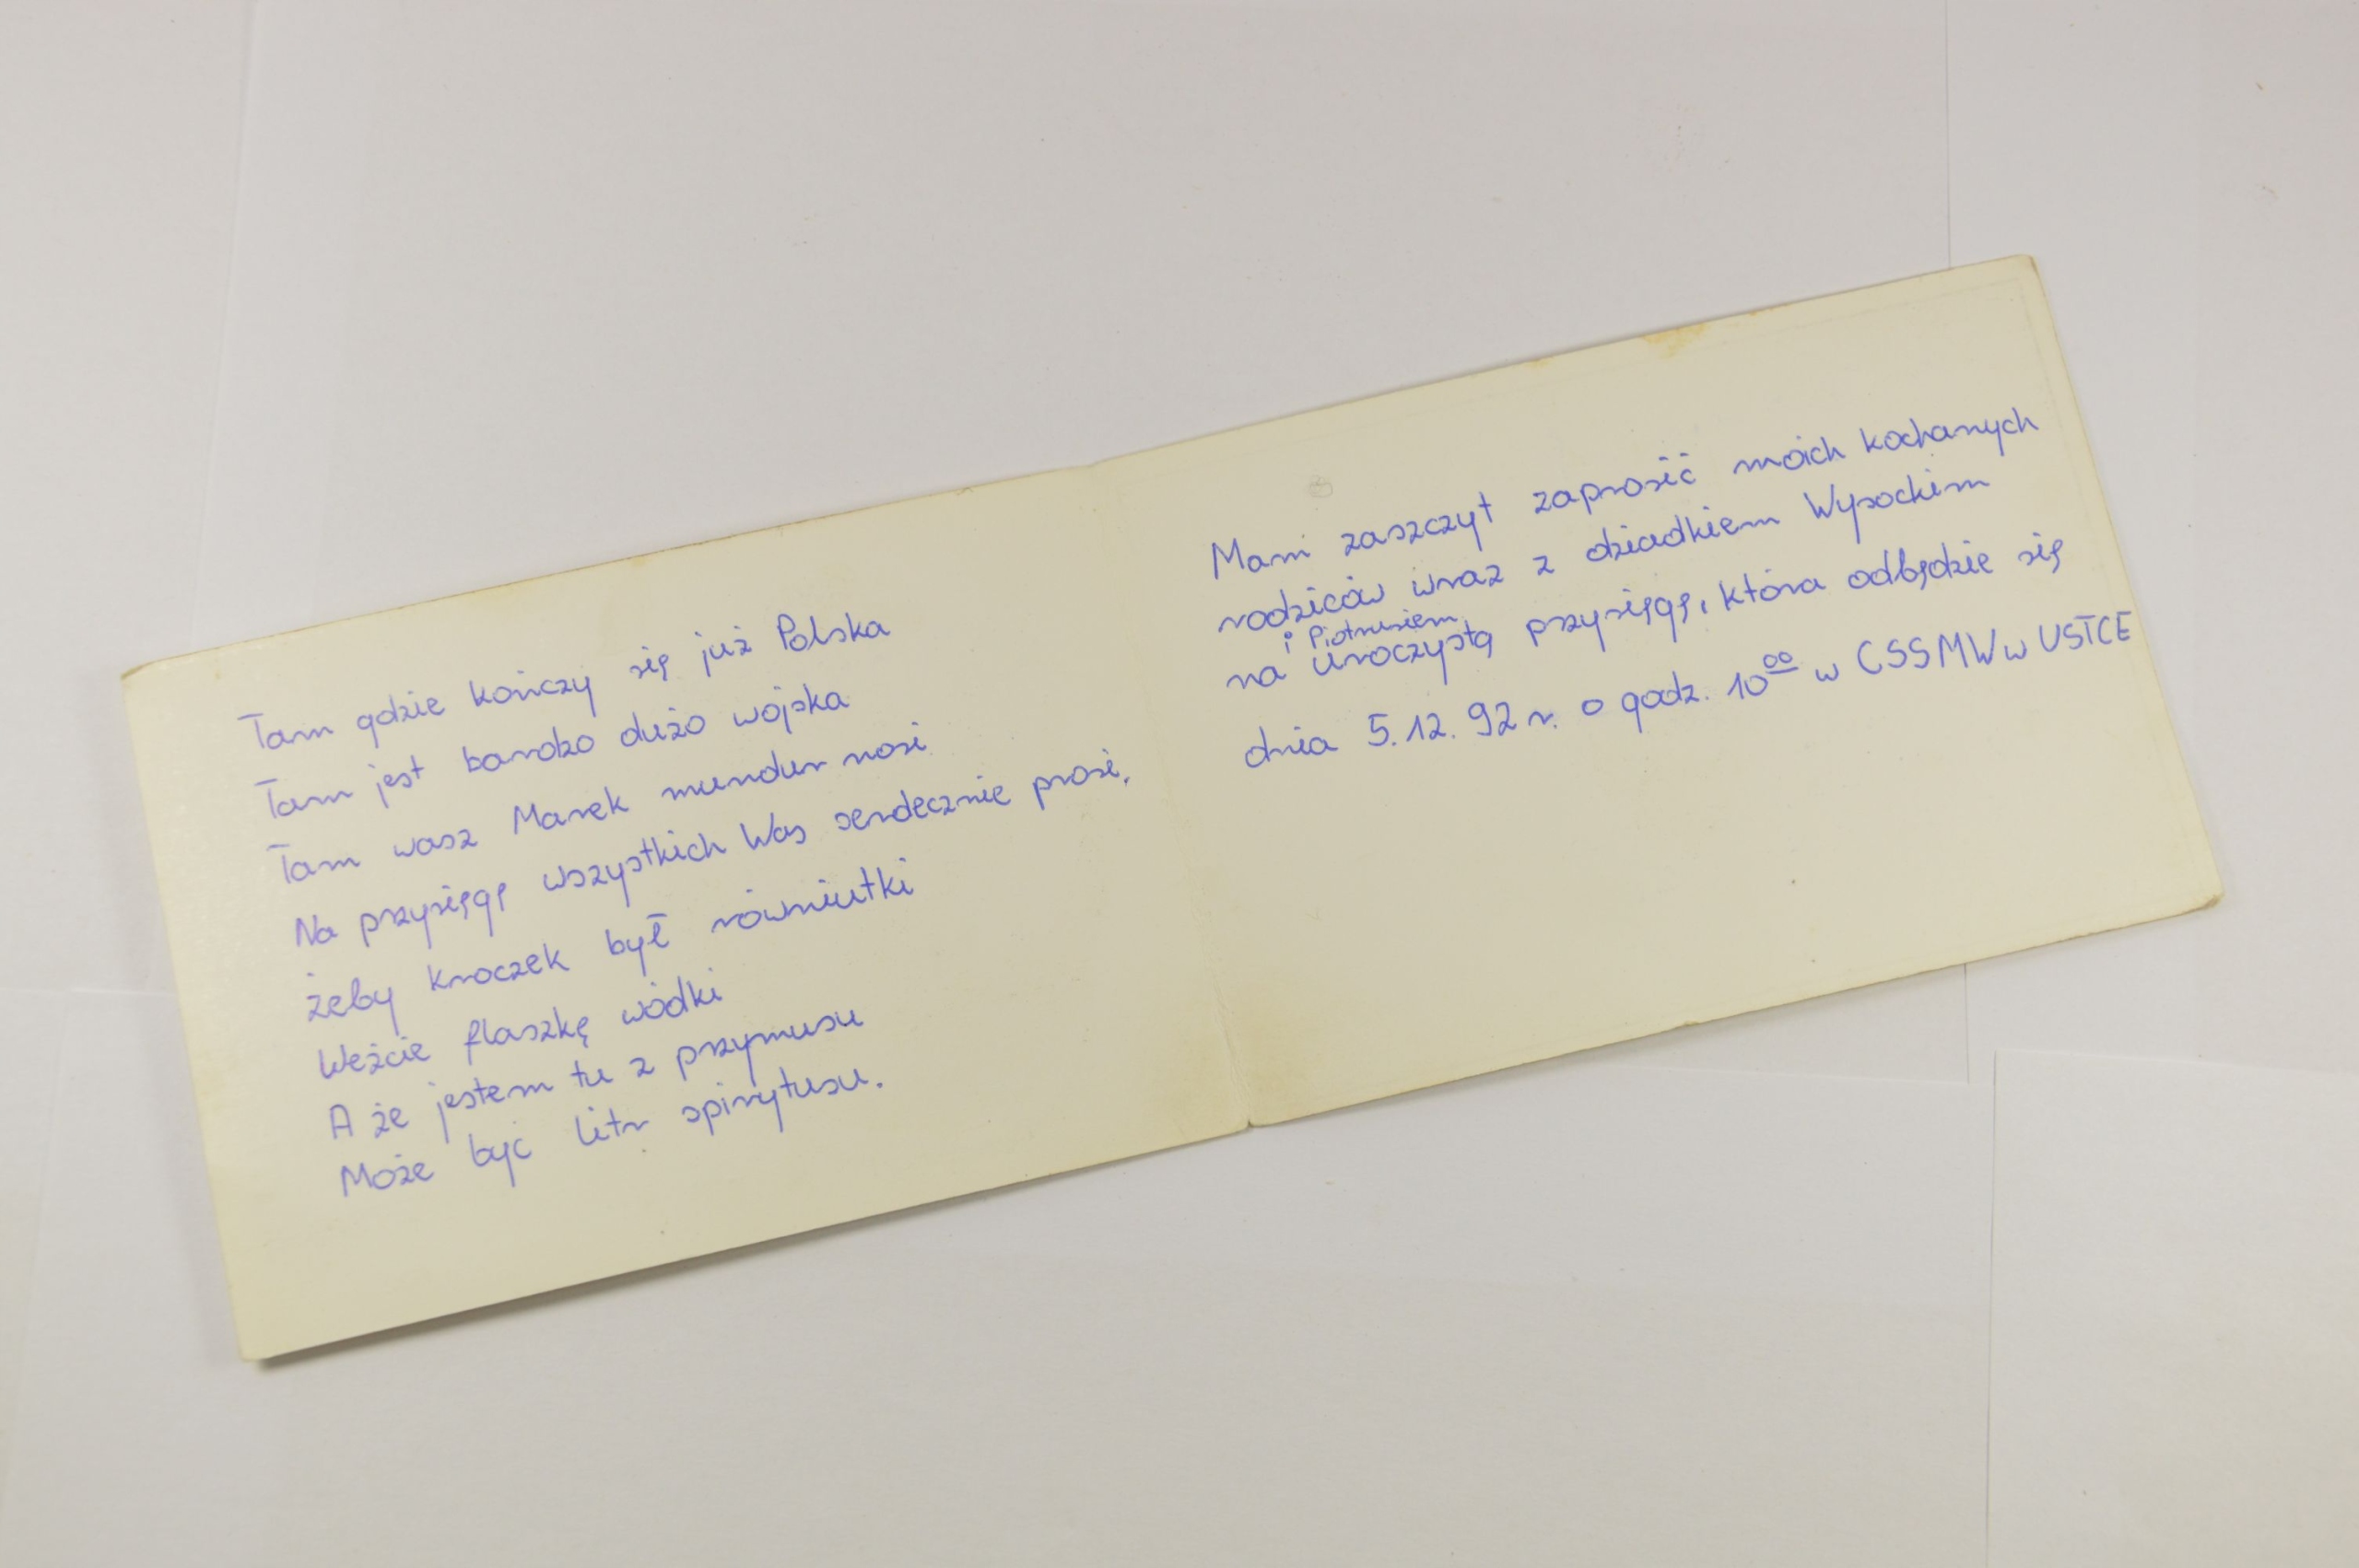 Tam gdzie kończy się już Polska
Tam jest bardzo dużo wojska
Tam wasz Marek mundur nosi
Na przysięgę wszystkich Was serdecznie prosi,
żeby kroczek był równiutki
Weźcie flaszkę wódki
A że jestem tu z przymusu
Może być litr spirytusu.
Mam zaszczyt zaprosić moich kochanych
rodziców wraz z dziadkiem Wysockim
i Piotrusiem
na uroczystą przysięgę, która odbędzie się
dnia 5.12.92 r. o godz. 10⁰⁰ w CSSMW w USTCE